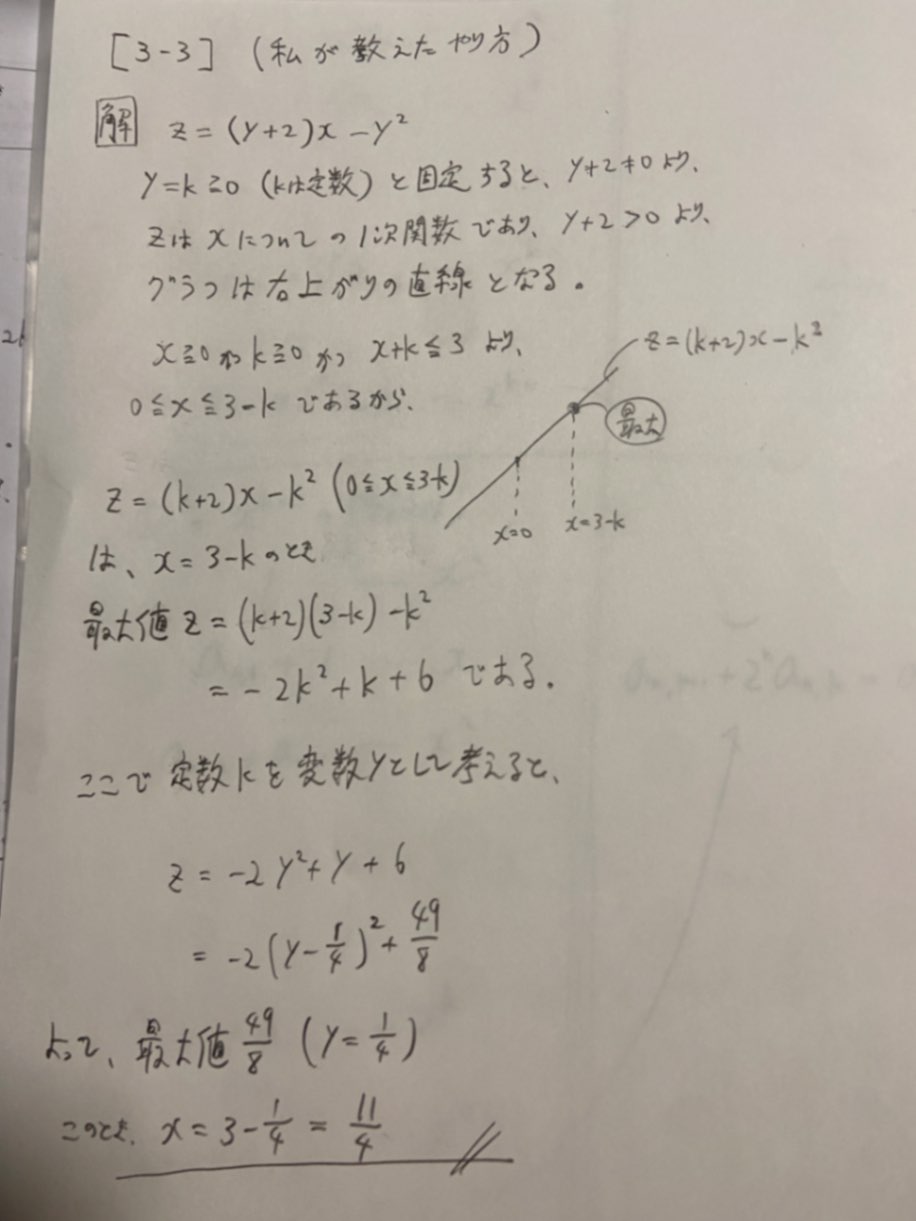 [3-3] (私が教えたやり方)
解 z = (y+2)x - y²
y = k ≧ 0 (kは定数) と固定すると、y+2≠0 より、
zは x についての1次関数であり、y+2 > 0 より、
グラフは右上がりの直線となる。
x ≧ 0 かつ k ≧ 0 かつ x+k ≦ 3 より、
0 ≦ x ≦ 3-k であるから、
z = (k+2)x - k²
最大
x=0
x=3-k
z = (k+2)x - k² (0 ≦ x ≦ 3-k)
は、x = 3-k のとき
最大値 z = (k+2)(3-k) - k²
= -2k² + k + 6 である。
ここで 定数 k を 変数 y として考えると、
z = -2y² + y + 6
= -2(y - 1/4)² + 49/8
よって、最大値 49/8 (y = 1/4)
このとき、x = 3 - 1/4 = 11/4